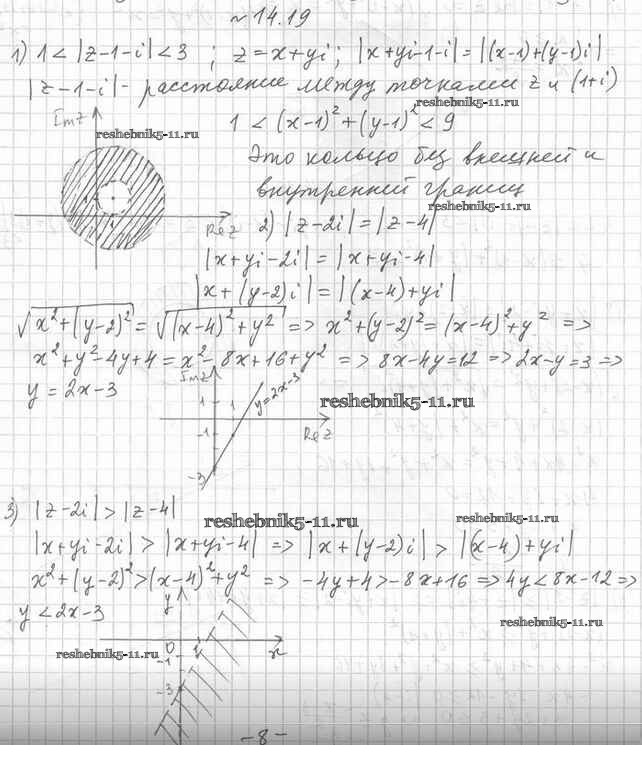 №14.19
1) 1 < |z-1-i| < 3 ; z = x+yi ; |x+yi-1-i| = |(x-1)+(y-1)i|
|z-1-i| - расстояние между точками z и (1+i)
reshebnik5-11.ru
Im z
reshebnik5-11.ru
1 < (x-1)²+(y-1)² < 9
Это кольцо без внешней и
внутренней границ
reshebnik5-11.ru
1
1
Re z
2) |z-2i| = |z-4|
|x+yi-2i| = |x+yi-4|
|x+(y-2)i| = |(x-4)+yi|
√(x²+(y-2)²) = √((x-4)²+y²) => x²+(y-2)² = (x-4)²+y² =>
x²+y²-4y+4 = x²-8x+16+y² => 8x-4y=12 => 2x-y=3 =>
y = 2x-3
Im z
1
1
y=2x-3
reshebnik5-11.ru
-1
Re z
-3
3) |z-2i| > |z-4|
reshebnik5-11.ru
reshebnik5-11.ru
|x+yi-2i| > |x+yi-4| => |x+(y-2)i| > |(x-4)+yi|
x²+(y-2)² > (x-4)²+y² => -4y+4 > -8x+16 => 4y < 8x-12 =>
y < 2x-3
y
reshebnik5-11.ru
reshebnik5-11.ru
0
1
x
-1
-3
-8-